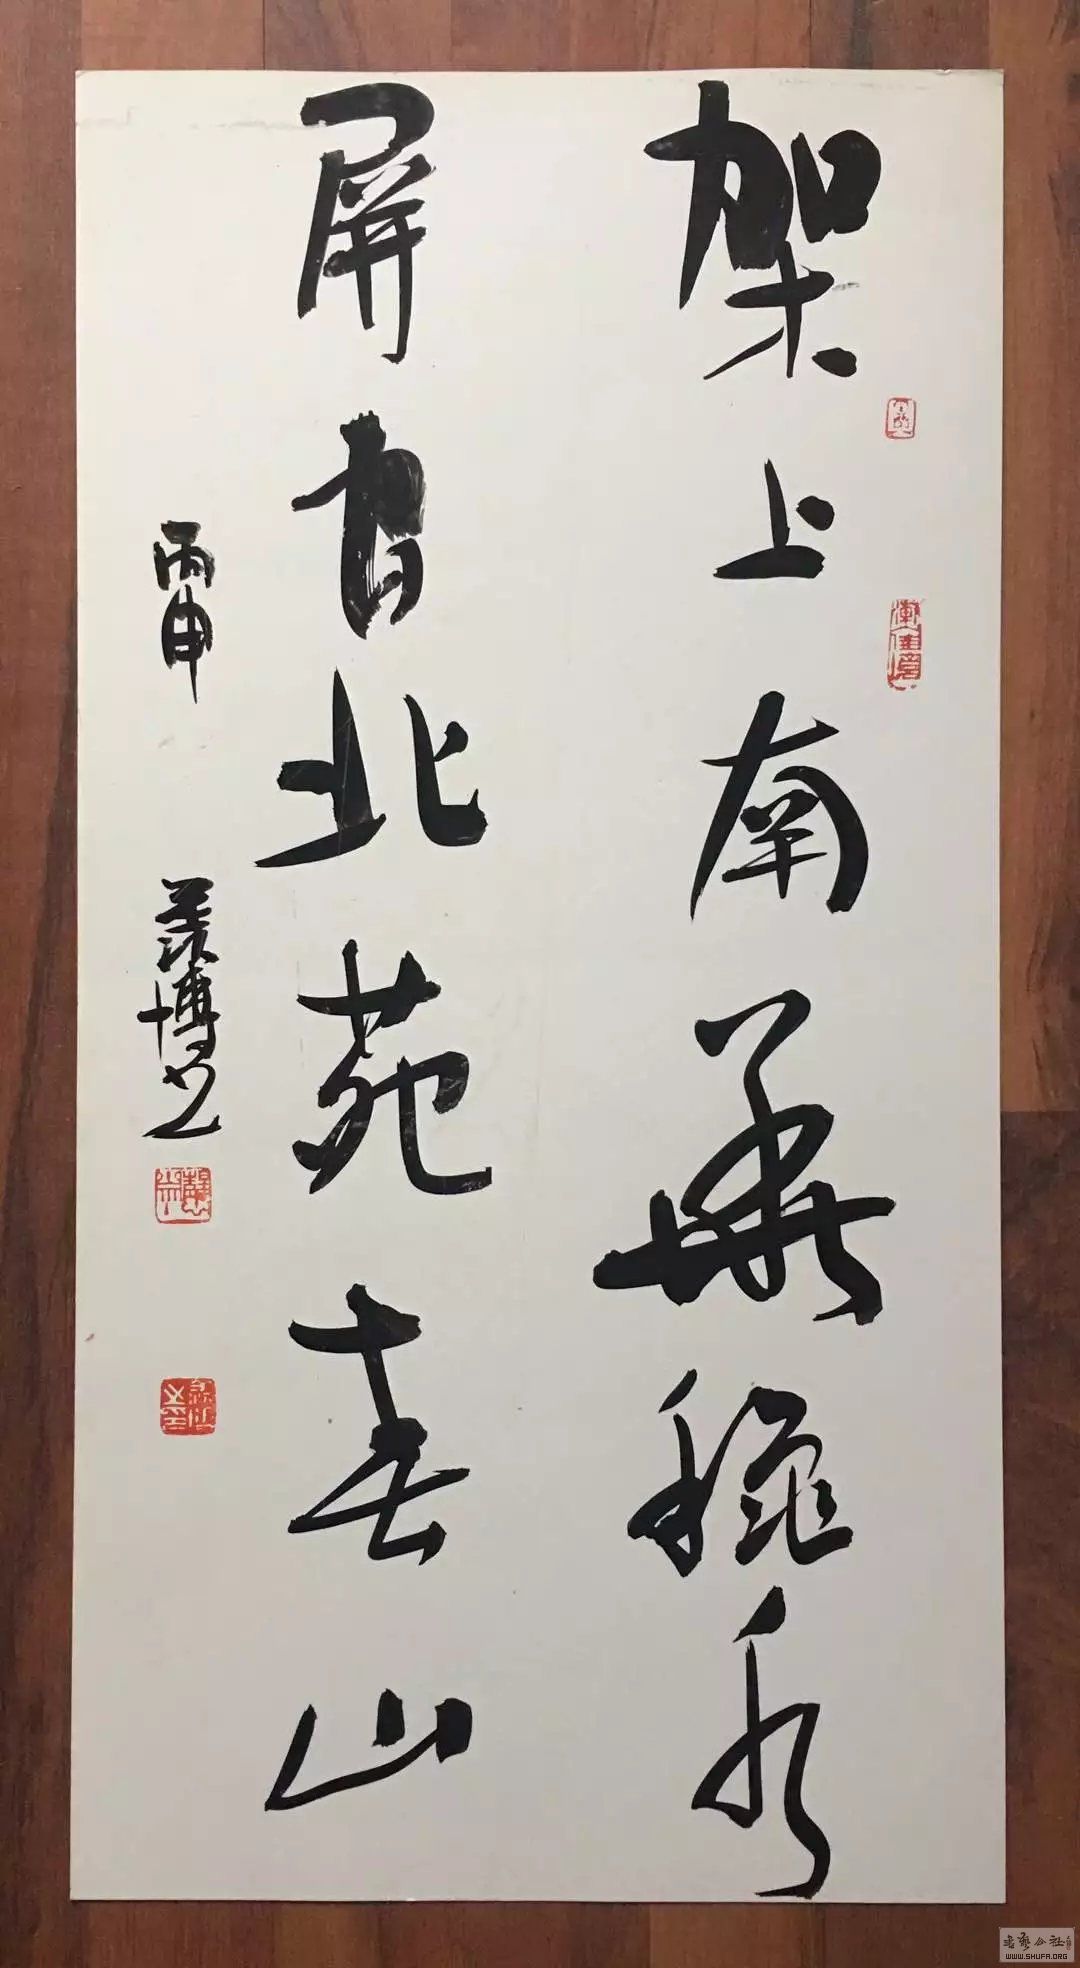 架上南華秋水
屏间北苑春山
丙申
羡博书
书艺公社
WWW.SHUFA.ORG